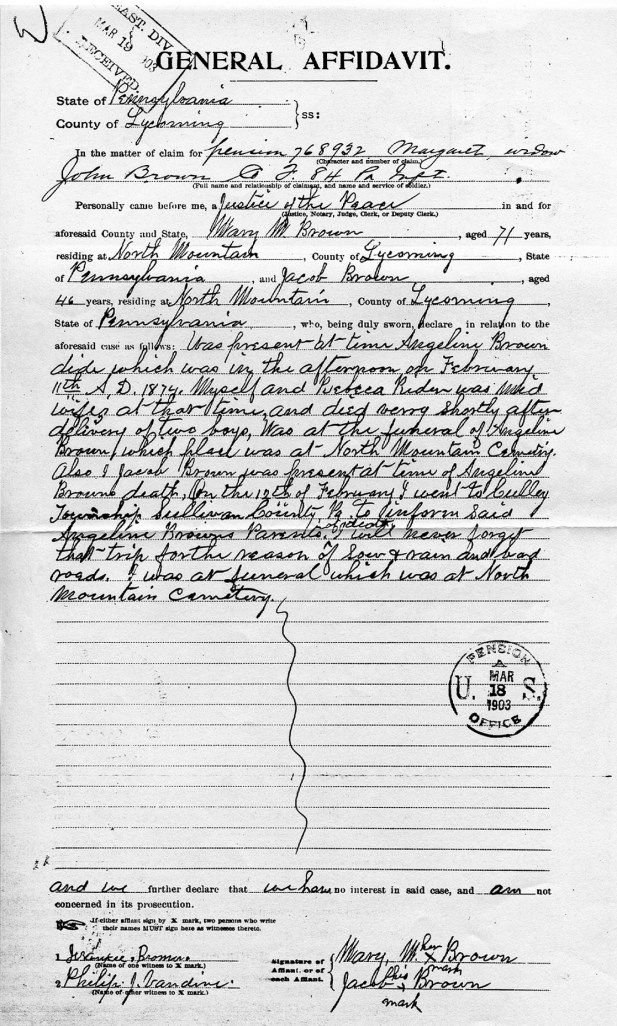 EAST. DIV.
MAR 19 1903
RECEIVED.
GENERAL AFFIDAVIT.
State of Pennsylvania
County of Lycoming } ss:
In the matter of claim for pension 768932 Margaret widow
(Character and number of claim.)
John Brown F. 84 Pa Inft.
(Full name and relationship of claimant, and name and service of soldier.)
Personally came before me, a Justice of the Peace in and for
(Justice, Notary, Judge, Clerk, or Deputy Clerk.)
aforesaid County and State, Mary M. Brown, aged 71 years,
residing at North Mountain, County of Lycoming, State
of Pennsylvania, and Jacob Brown, aged
46 years, residing at North Mountain, County of Lycoming,
State of Pennsylvania, who, being duly sworn, declare in relation to the
aforesaid case as follows: Was present at time Angeline Brown
dide which was in the afternoon on Februrary
11th A.D. 1874. Myself and Rebecca was mid
wifes at that time, and died verry shortly after
delivery of two boys, Was at the funeral of Angeline
Brown, which place was at North Mountain Cemetry.
Also I Jacob Brown was present at time of Angeline
Browns death, On the 12th of February I went to
Township Sullivan County Pa. to inform said
Angeline Browns Parents of death. I will never forget
that trip for the reason of & rain and bad
roads. I was at funeral which was at North
Mountain Cemetery.
PENSION
A
U. MAR S.
18
1903
OFFICE
and we further declare that we have no interest in said case, and am not
concerned in its prosecution.
If either affiant sign by X mark, two persons who write
their names MUST sign here as witnesses thereto.
1
(Name of one witness to X mark.)
2 Philip J. Vandine.
(Name of other witness to X mark.)
Signature of
Affiant, or of
each Affiant.
Mary, M. her X mark Brown
Jacob his X mark Brown